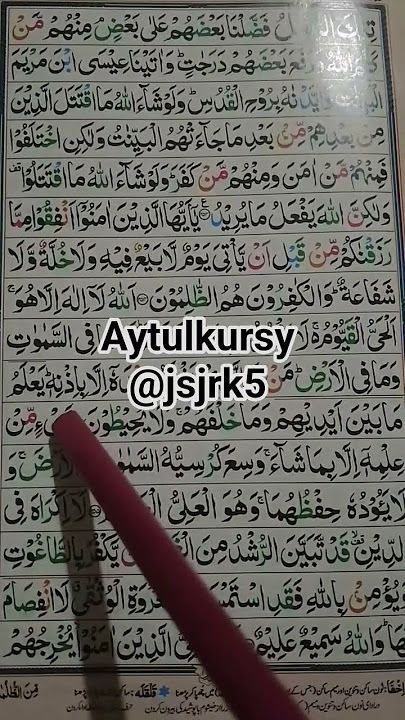 فَضَّلْنَا بَعْضَهُمْ عَلٰى بَعْضٍ مِنْهُمْ مَّنْ
اللّٰهُ وَرَفَعَ بَعْضَهُمْ دَرَجٰتٍ وَاٰتَيْنَا عِيْسَى ابْنَ مَرْيَمَ
بِرُوْحِ الْقُدُسِ وَلَوْ شَآءَ اللّٰهُ مَا اقْتَتَلَ الَّذِيْنَ
مِنْ بَعْدِهِمْ مِّنْ بَعْدِ مَا جَآءَتْهُمُ الْبَيِّنٰتُ وَلٰكِنِ اخْتَلَفُوْا
فَمِنْهُمْ مَّنْ اٰمَنَ وَمِنْهُمْ مَّنْ كَفَرَ وَلَوْ شَآءَ اللّٰهُ مَا اقْتَتَلُوْا
وَلٰكِنَّ اللّٰهَ يَفْعَلُ مَا يُرِيْدُ يٰٓاَيُّهَا الَّذِيْنَ اٰمَنُوْٓا اَنْفِقُوْا مِمَّا
رَزَقْنٰكُمْ مِّنْ قَبْلِ اَنْ يَّاْتِيَ يَوْمٌ لَّا بَيْعٌ فِيْهِ وَلَا خُلَّةٌ وَّلَا
شَفَاعَةٌ وَالْكٰفِرُوْنَ هُمُ الظّٰلِمُوْنَ اَللّٰهُ لَآ اِلٰهَ اِلَّا هُوَ
اَلْحَيُّ الْقَيُّوْمُ فِي السَّمٰوٰتِ
Aytulkursy
وَمَا فِي الْاَرْضِ مَنْ اِلَّا بِاِذْنِهٖ يَعْلَمُ
@jsjrk5
مَا بَيْنَ اَيْدِيْهِمْ وَمَا خَلْفَهُمْ وَلَا يُحِيْطُوْنَ مِّنْ
عِلْمِهٖٓ اِلَّا بِمَا شَآءَ وَسِعَ كُرْسِيُّهُ السَّمٰوٰتِ وَ
لَا يَـُٔوْدُهٗ حِفْظُهُمَا وَهُوَ الْعَلِيُّ لَآ اِكْرَاهَ فِي
الدِّيْنِ قَدْ تَّبَيَّنَ الرُّشْدُ مِنَ يَّكْفُرْ بِالطَّاغُوْتِ
وَيُؤْمِنْ بِاللّٰهِ فَقَدِ الْوُثْقٰى لَا انْفِصَامَ
لَهَا وَاللّٰهُ سَمِيْعٌ عَلِيْمٌ الَّذِيْنَ اٰمَنُوْا يُخْرِجُهُمْ